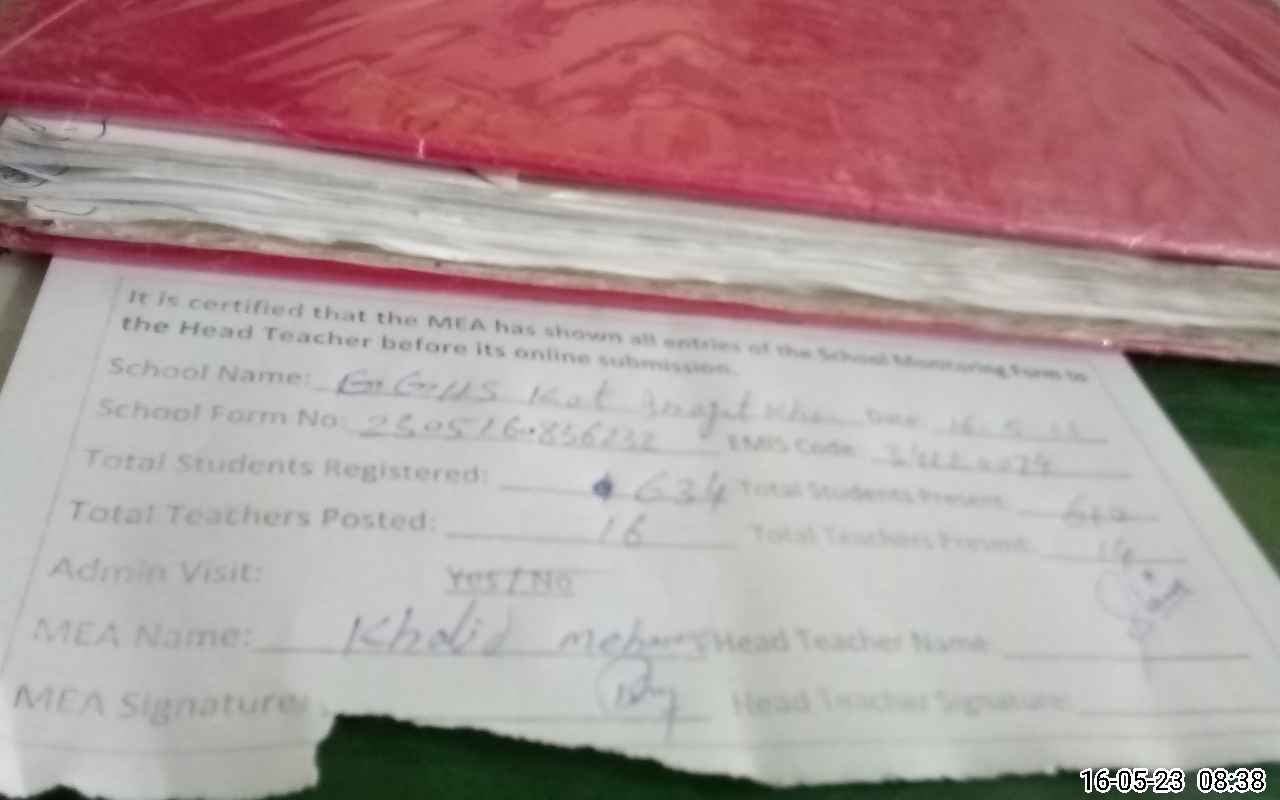 It is certified that the MEA has shown all entries of the School Monitoring Form to
the Head Teacher before its online submission.
School Name: GGHS Kot Khan Date: 16.5
School Form No: 230516-856232 EMIS Code:
Total Students Registered: 634 Total Students Present:
Total Teachers Posted: 16 Total Teachers Present: 14
Admin Visit: Yes / No
MEA Name: Khalid Head Teacher Name:
MEA Signature: Head Teacher Signature:
16-05-23 08:38